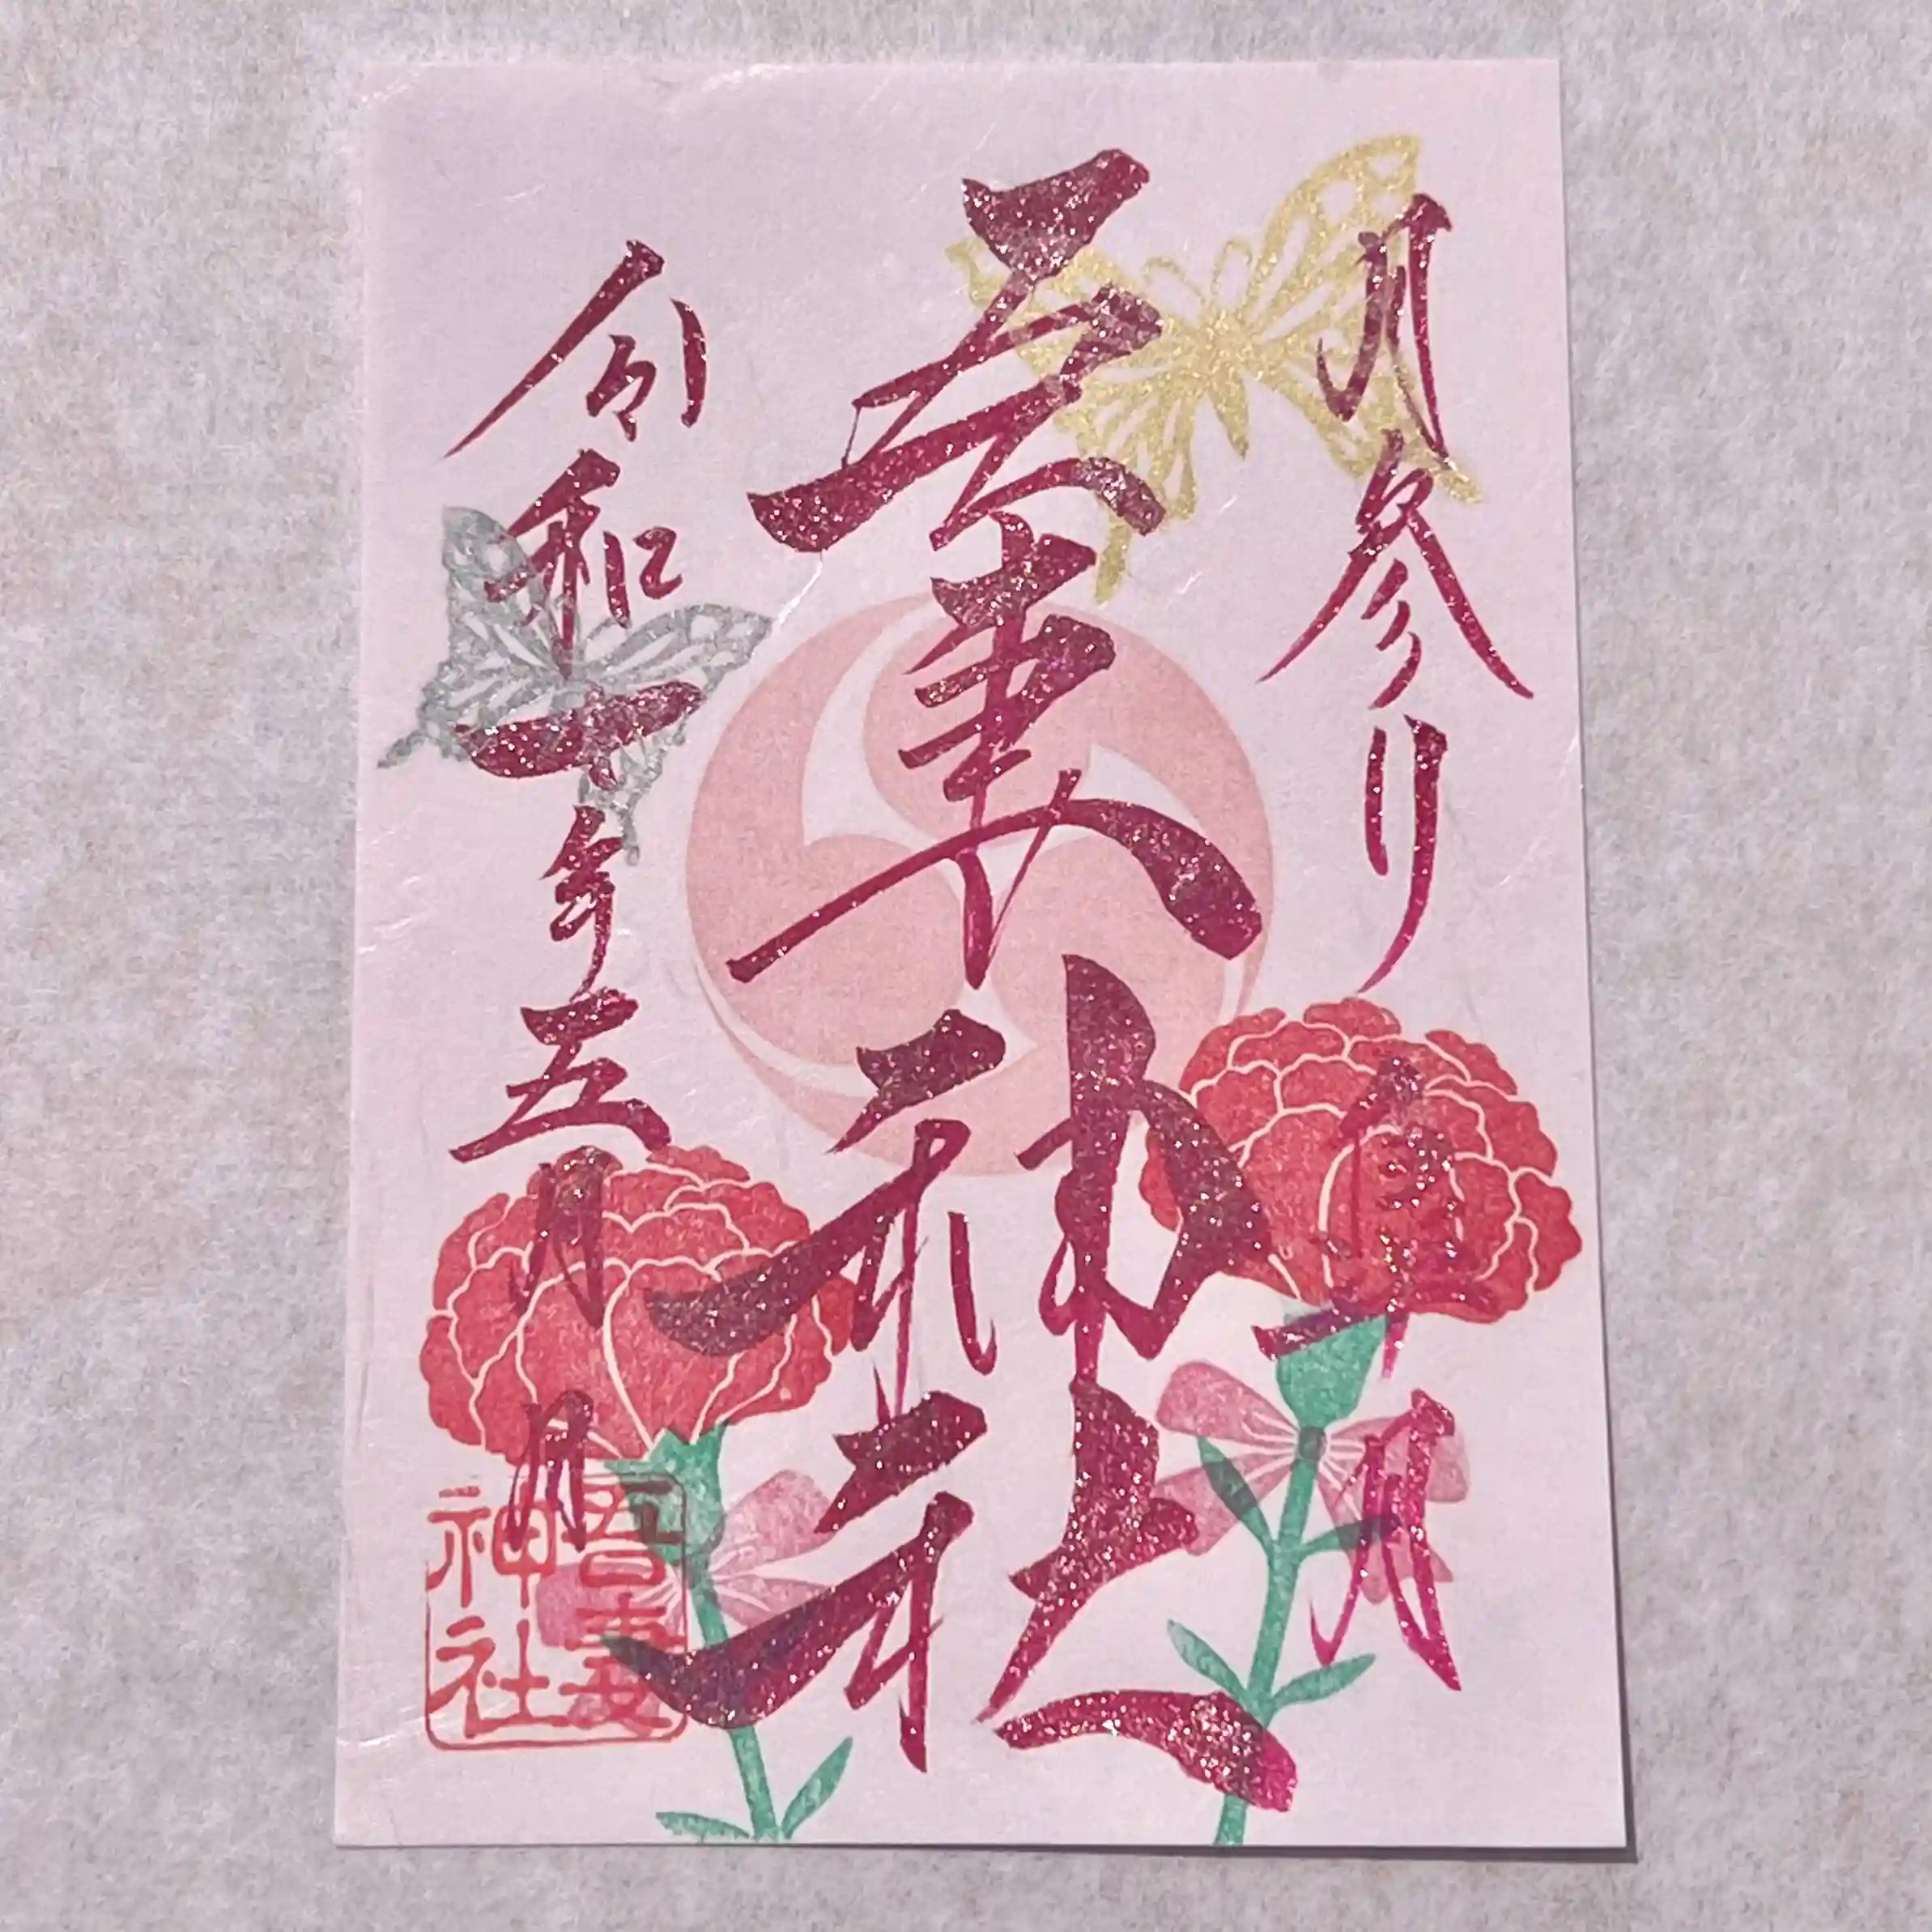 月参り 皐月
吾妻神社
令和七年五月 日
吾妻
神社